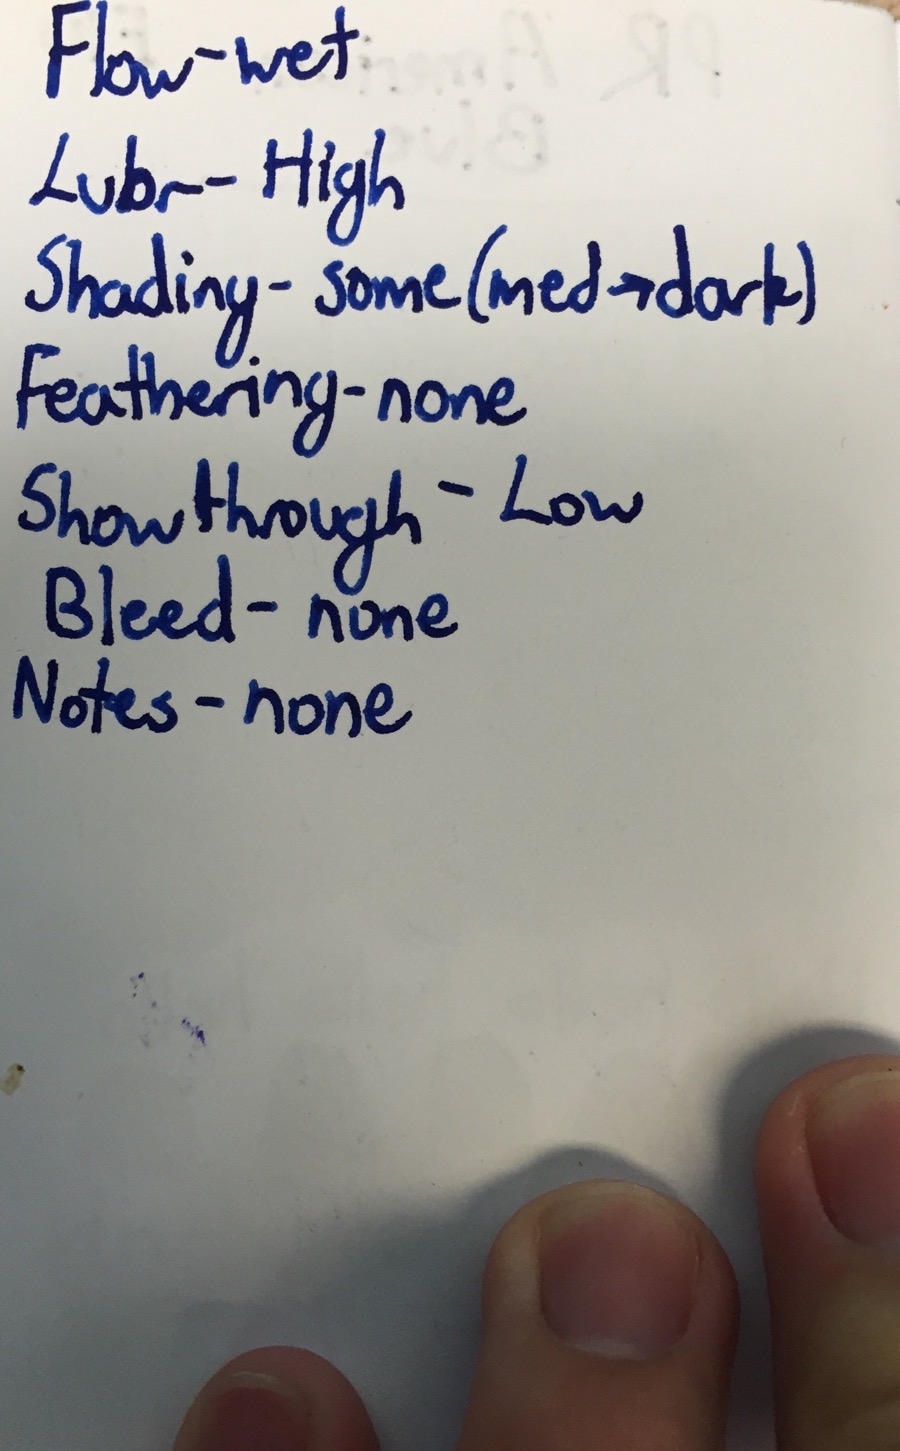 Flow-wet
Lubr-- High
Shading- some (med→dark)
Feathering-none
Showthrough - Low
Bleed- none
Notes - none
PR American
Blue